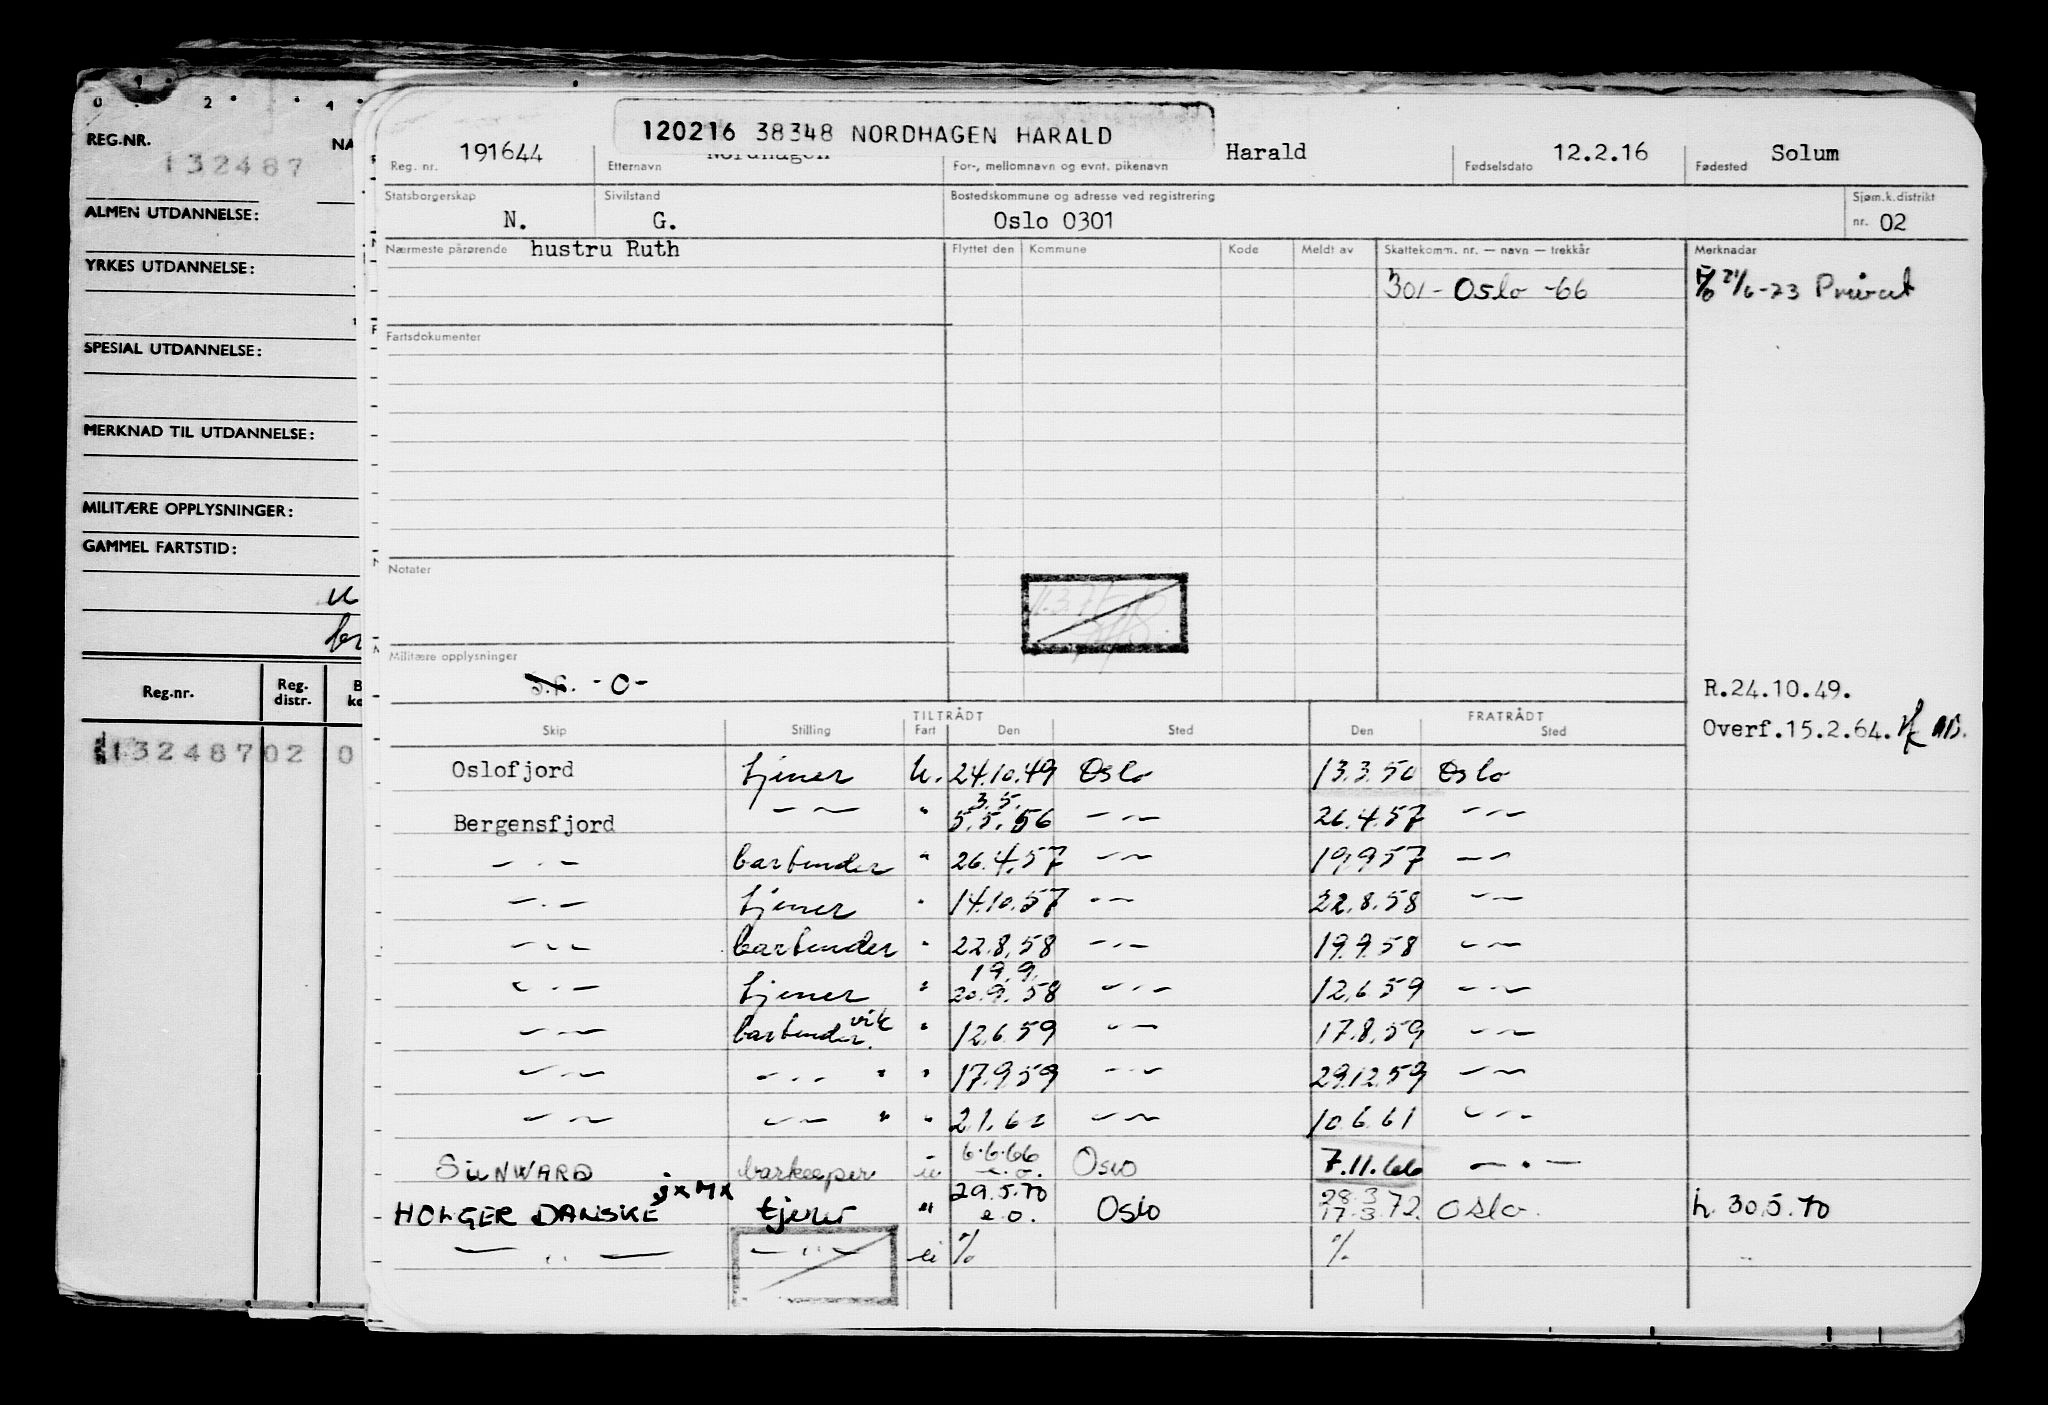 0 2 4
REG.NR. NA
132487
ALMEN UTDANNELSE:
YRKES UTDANNELSE:
SPESIAL UTDANNELSE:
MERKNAD TIL UTDANNELSE:
MILITÆRE OPPLYSNINGER:
GAMMEL FARTSTID:
Reg.nr. Reg. distr.
132487 02 0
120216 38348 NORDHAGEN HARALD
191644 Nordhagen Harald 12.2.16 Solum
Reg. nr. Etternavn For-, mellomnavn og evnt. pikenavn Fødselsdato Fødested
Statsborgerskap Sivilstand Bostedskommune og adresse ved registrering Sjøm.k.distrikt
N. G. Oslo 0301 nr. 02
Nærmeste pårørende hustru Ruth Flyttet den Kommune Kode Meldt av Skattekomm. nr. — navn — trekkår Merknadar
301 - Oslo -66 21/6-73 Privat
Fartsdokumenter
Notater
Militære opplysninger
-0-
R.24.10.49.
Overf.15.2.64.
TILTRÅDT FRATRÅDT
Skip Stilling Fart Den Sted Den Sted
Oslofjord tjener U. 24.10.49 Oslo 13.3.50 Oslo
3.5.
Bergensfjord — " — " 5.5.56 — " — 26.4.57 — " —
— " — bartender " 26.4.57 — " — 19.9.57 — " —
— " — tjener " 14.10.57 — " — 22.8.58 — " —
— " — bartender " 22.8.58 — " — 19.9.58 — " —
19.9.
— " — tjener " 20.9.58 — " — 12.6.59 — " —
— " — bartender vik. " 12.6.59 — " — 17.8.59 — " —
— " — — " — " " 17.9.59 — " — 29.12.59 — " —
— " — — " — " " 2.1.60 — " — 10.6.61 — " —
6.6.66
SUNWARD barkeeper u e.o. Oslo 7.11.66 — " —
jxMx 29.5.70 28.3
HOLGER DANSKE tjener " e.o. Oslo 17.3.72 Oslo. h. 30.5.70
— " — — " — u % %